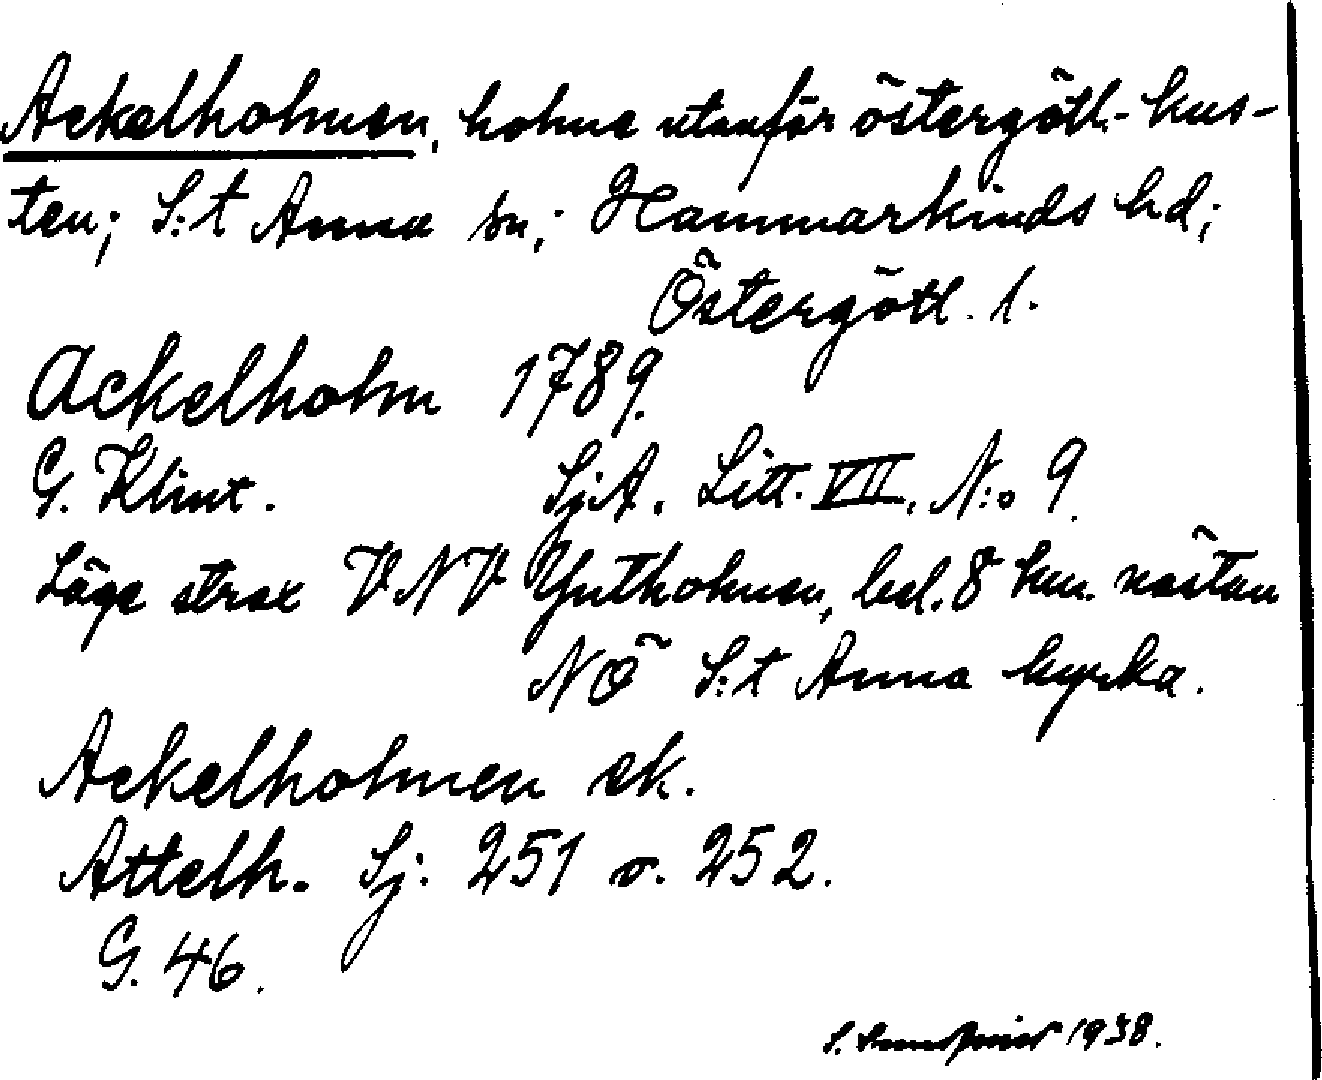 Ackelholmen, holme utanför östergötl.-kus-
ten; S:t Anna sn; Hammarkinds hd;
Östergötl. l.
Ackelholm 1789.
G. Klint. SjA. Litt. VII. N:o 9.
Läge strax VNV Ytholmen, bel. 8 km. nästan
NÖ S:t Anna kyrka.
Ackelholmen ek.
Attelh. Sj: 251 o. 252.
G. 46.
S. 1938.